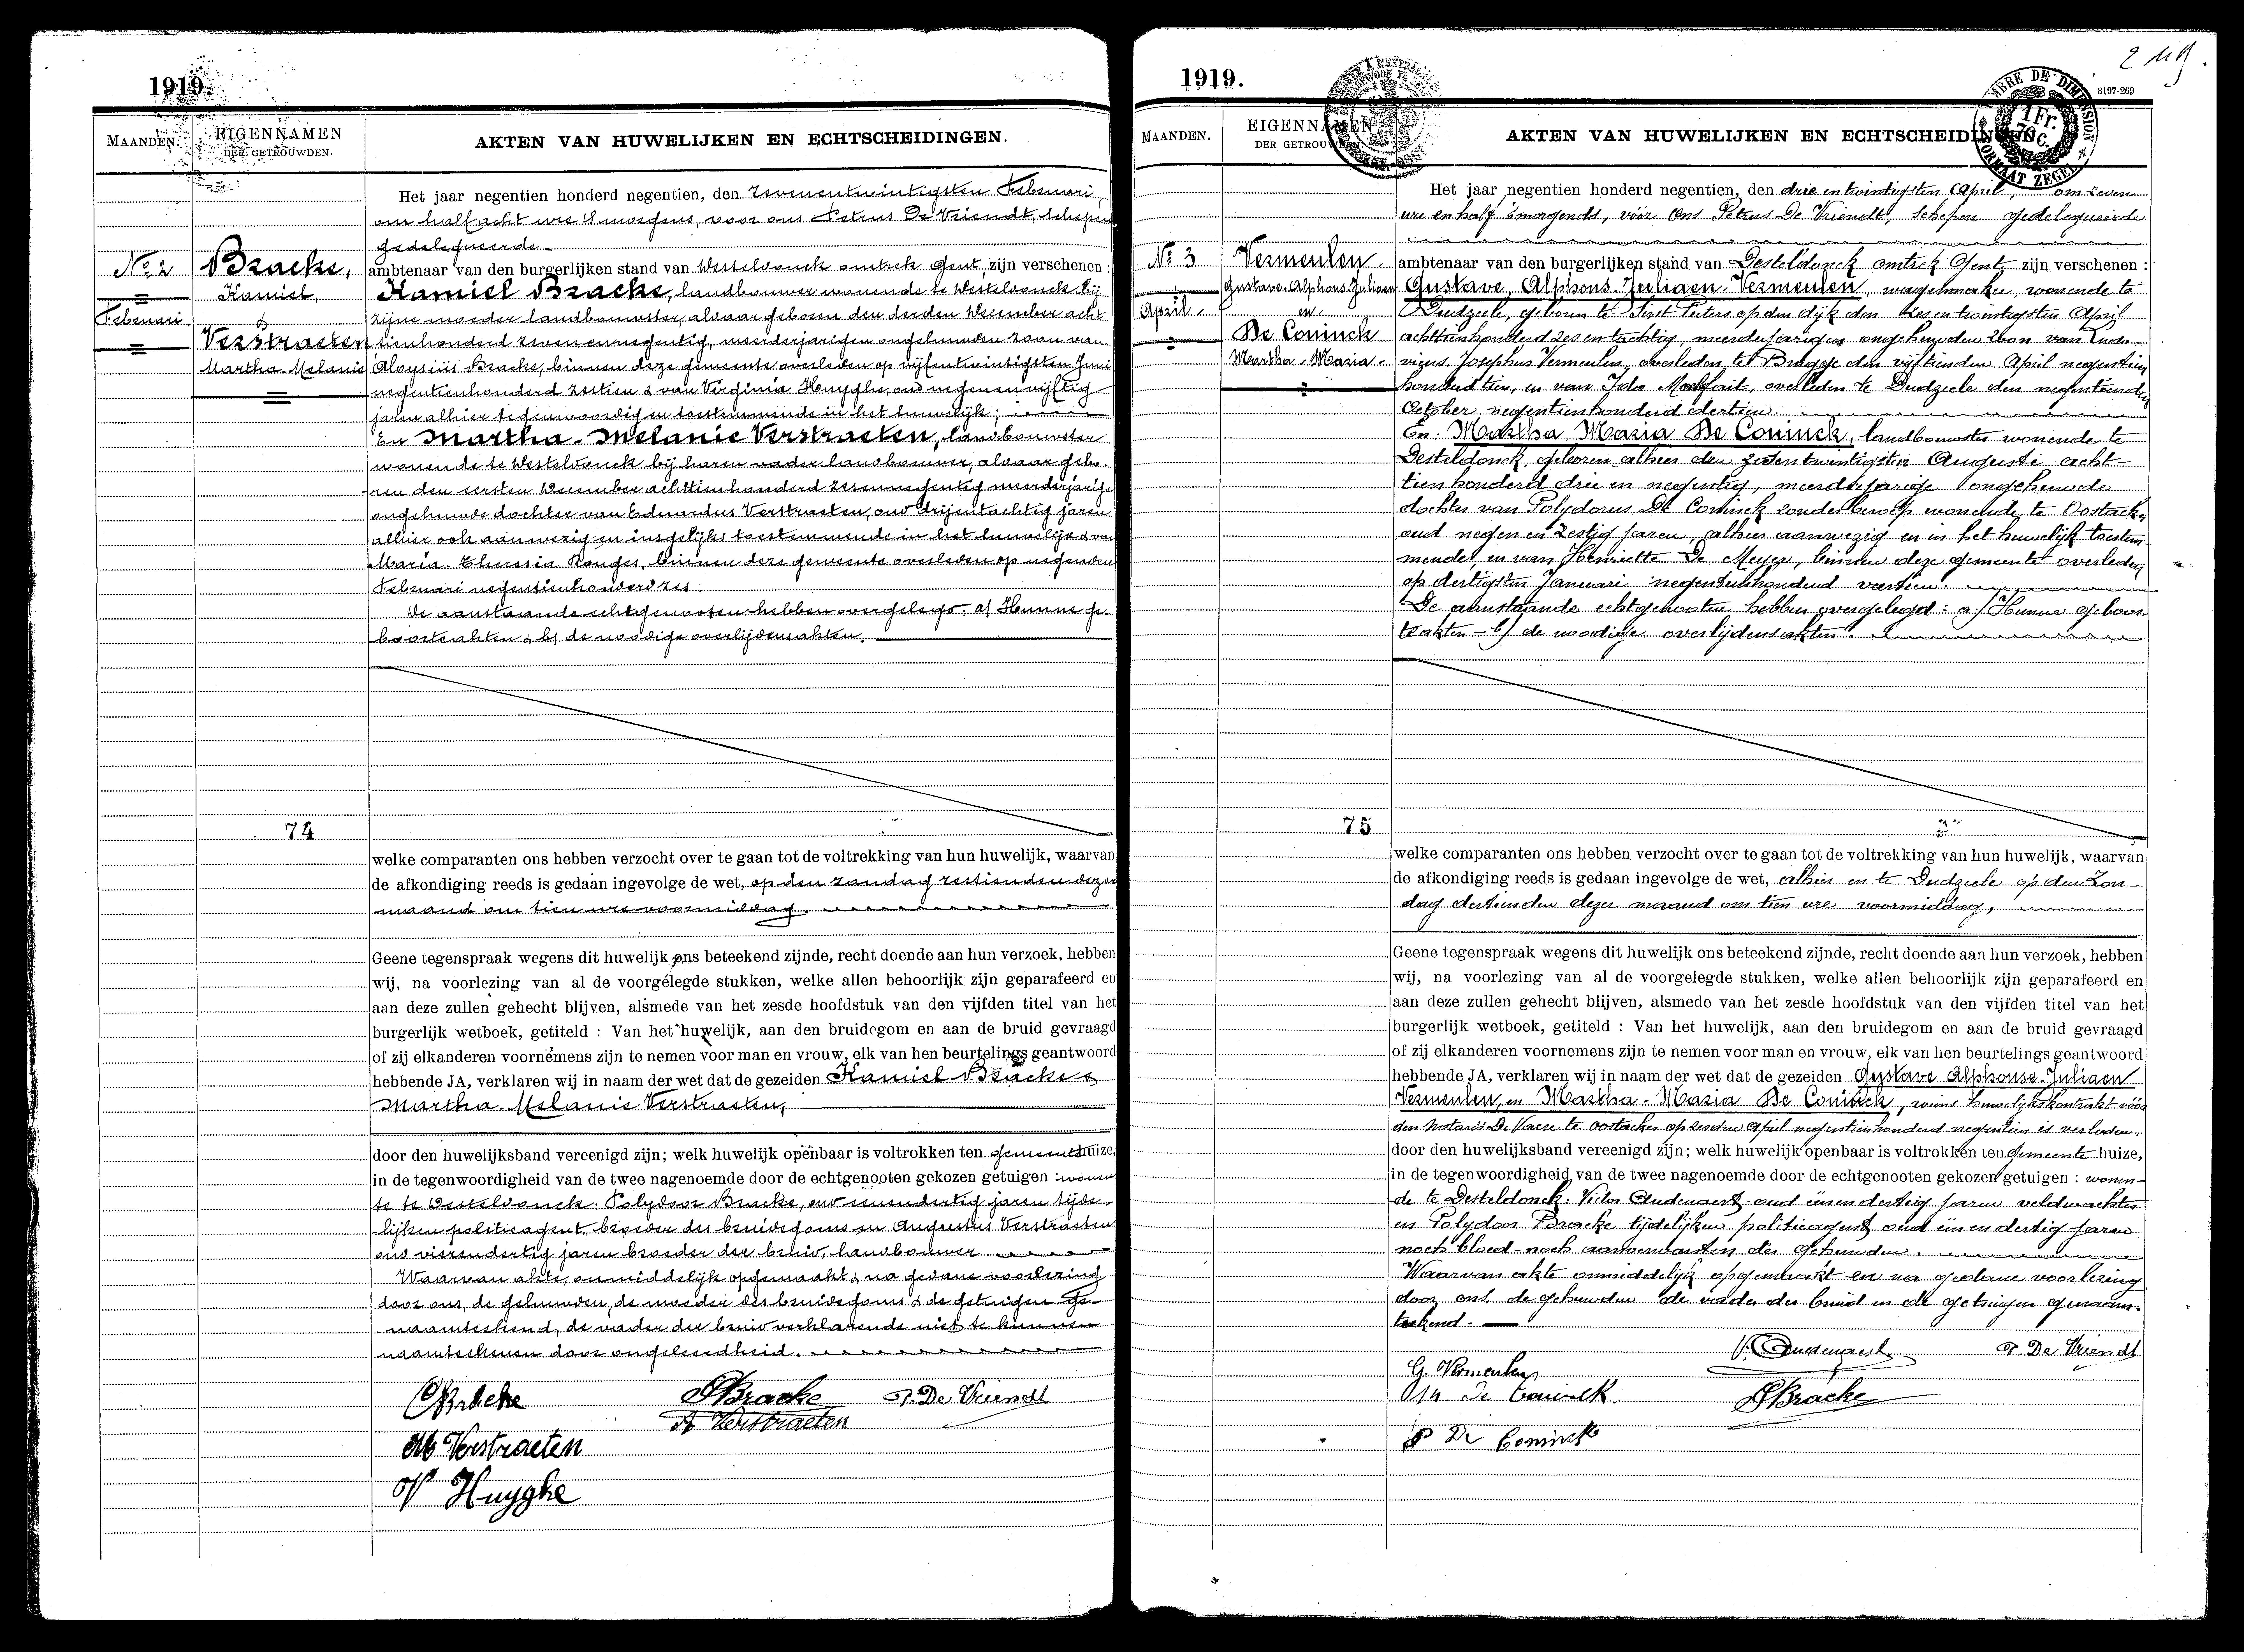 1919.
MAANDEN.
EIGENNAMEN
DER GETROUWDEN.
AKTEN VAN HUWELIJKEN EN ECHTSCHEIDINGEN.
Het jaar negentien honderd negentien, den zevenentwintigsten Februari,
om half acht ure 's morgens, voor ons Petrus De Vriendt, schepen
gedelegueerde
No 2
Bracke,
Kamiel,
&
Februari.
Verstraeten
Martha-Melanie
ambtenaar van den burgerlijken stand van Desteldonck omtrek Gent, zijn verschenen :
Kamiel Bracke, landbouwer wonende te Desteldonck bij
zijne moeder landbouwster, alvaar geboren den derden December acht
tienhonderd zevenennegentig, meerderjarigen ongehuwden zoon van
Aloysius Bracke, binnen deze gemeente overleden op vijfentwintigsten Juni
negentienhonderd zestien & van Virginia Huyghe, oud negenenvijftig
jaren alhier tegenwoordig en toestemmende in het huwelijk;
En Martha-Melanie Verstraeten, landbouwster
wonende te Desteldonck bij haren vader landbouwer, alvaar gebo-
ren den eersten December achttienhonderd zesennegentig meerderjarige
ongehuwde dochter van Eduardus Verstraeten, oud drijentachtig jaren
alhier ook aanwezig en insgelijks toestemmende in het huwelijk & van
Maria-Theresia Rouges, binnen deze gemeente overleden op negenden
Februari negentienhonderd zes
De aanstaande echtgenooten hebben overgelegd: a) Hunne ge-
boorteakten & b) de noodige overlijdensakten.
74
welke comparanten ons hebben verzocht over te gaan tot de voltrekking van hun huwelijk, waarvan
de afkondiging reeds is gedaan ingevolge de wet, op den zondag zestienden dezer
maand om tien ure voormiddag.
Geene tegenspraak wegens dit huwelijk ons beteekend zijnde, recht doende aan hun verzoek, hebben
wij, na voorlezing van al de voorgelegde stukken, welke allen behoorlijk zijn geparafeerd en
aan deze zullen gehecht blijven, alsmede van het zesde hoofdstuk van den vijfden titel van het
burgerlijk wetboek, getiteld : Van het huwelijk, aan den bruidegom en aan de bruid gevraagd
of zij elkanderen voornemens zijn te nemen voor man en vrouw, elk van hen beurtelings geantwoord
hebbende JA, verklaren wij in naam der wet dat de gezeiden Kamiel Bracke &
Martha-Melanie Verstraeten,
door den huwelijksband vereenigd zijn; welk huwelijk openbaar is voltrokken ten gemeentehuize,
in de tegenwoordigheid van de twee nagenoemde door de echtgenooten gekozen getuigen : wonen
de te Desteldonck: Polydoor Bracke, oud eenendertig jaren tijde-
lijken politieagent, broeder des bruidegoms en Augustus Verstraeten
oud vierendertig jaren broeder der bruid, landbouwer
Waarvan akte, onmiddelijk opgemaakt & na gedane voorlezing
door ons, de gehuwden, de moeder des bruidegoms & de getuigen ge-
naamteekend, de vader der bruid verklarende niet te kunnen
naamteekenen door ongeleerdheid.
CBracke
PBracke
P. De Vriendt
A Verstraeten
M Verstraeten
V Huyghe
1919.
2 119.
3197-269
TIMBRE DE DIMENSION
1 Fr.
FORMAAT ZEGEL
MAANDEN.
EIGENNAMEN
DER GETROUWDEN.
AKTEN VAN HUWELIJKEN EN ECHTSCHEIDINGEN.
Het jaar negentien honderd negentien, den drie en twintigsten April, om zeven
ure en half 's morgends, vóór ons Petrus De Vriendt, schepen gedelegueerde
No 3
Vermeulen
Gustave-Alphons-Juliaen
April.
en.
De Coninck
Martha-Maria.
ambtenaar van den burgerlijken stand van Desteldonck omtrek Gent, zijn verschenen :
Gustave, Alphons-Juliaen Vermeulen, wagenmaker, wonende te
Dudzeele, geboren te Sint Pieters op den dijk den zes en twintigsten April
achttienhonderd zes en tachtig, meerderjarigen ongehuwden zoon van Ludo-
vicus Josephus Vermeulen, overleden te Brugge den vijftienden April negentien
honderd tien, en van Ida overleden te Dudzeele den negentienden
October negentienhonderd dertien.
En: Martha Maria De Coninck, landbouwster wonende te
Desteldonck, geboren alhier den zevenentwintigsten Augusti acht-
tien honderd drie en negentig, meerderjarige ongehuwde
dochter van Polydorus De Coninck zonder beroep wonende te Oostacker
oud negen en zestig jaren, alhier aanwezig en in het huwelijk toestem-
mende, en van Henriette De Meyer, binnen deze gemeente overleden
op dertigsten Januari negentienhonderd veertien.
De aanstaande echtgenooten hebben overgelegd: a) Hunne geboor-
teakten - b) de noodige overlijdensakten.
75
welke comparanten ons hebben verzocht over te gaan tot de voltrekking van hun huwelijk, waarvan
de afkondiging reeds is gedaan ingevolge de wet, alhier en te Dudzeele op den Zon-
dag dertienden dezer maand om tien ure voormiddag,
Geene tegenspraak wegens dit huwelijk ons beteekend zijnde, recht doende aan hun verzoek, hebben
wij, na voorlezing van al de voorgelegde stukken, welke allen behoorlijk zijn geparafeerd en
aan deze zullen gehecht blijven, alsmede van het zesde hoofdstuk van den vijfden titel van het
burgerlijk wetboek, getiteld : Van het huwelijk, aan den bruidegom en aan de bruid gevraagd
of zij elkanderen voornemens zijn te nemen voor man en vrouw, elk van hen beurtelings geantwoord
hebbende JA, verklaren wij in naam der wet dat de gezeiden Gustave Alphonse-Juliaen
Vermeulen, en Martha-Maria De Coninck, wiens huwelijkskontrakt vóór
den Notaris De Vaere te Oostacker op zesden April negentienhonderd negentien is verleden.
door den huwelijksband vereenigd zijn; welk huwelijk openbaar is voltrokken ten Gemeente huize,
in de tegenwoordigheid van de twee nagenoemde door de echtgenooten gekozen getuigen : wonen-
de te Desteldonck: Victor Audenaert, oud eenen dertig jaren veldwachter
en Polydoor Bracke tijdelijken politieagent oud eenen dertig jaren
noch bloed- noch aanverwanten der gehuwden.
Waarvan akte onmiddelijk opgemaakt en na gedane voorlezing
door ons de gehuwden de vader der bruid en de getuigen genaam-
teekend.
V. Audenaert
P. De Vriendt
G. Vermeulen
Ma De Coninck
PBracke
P De Coninck